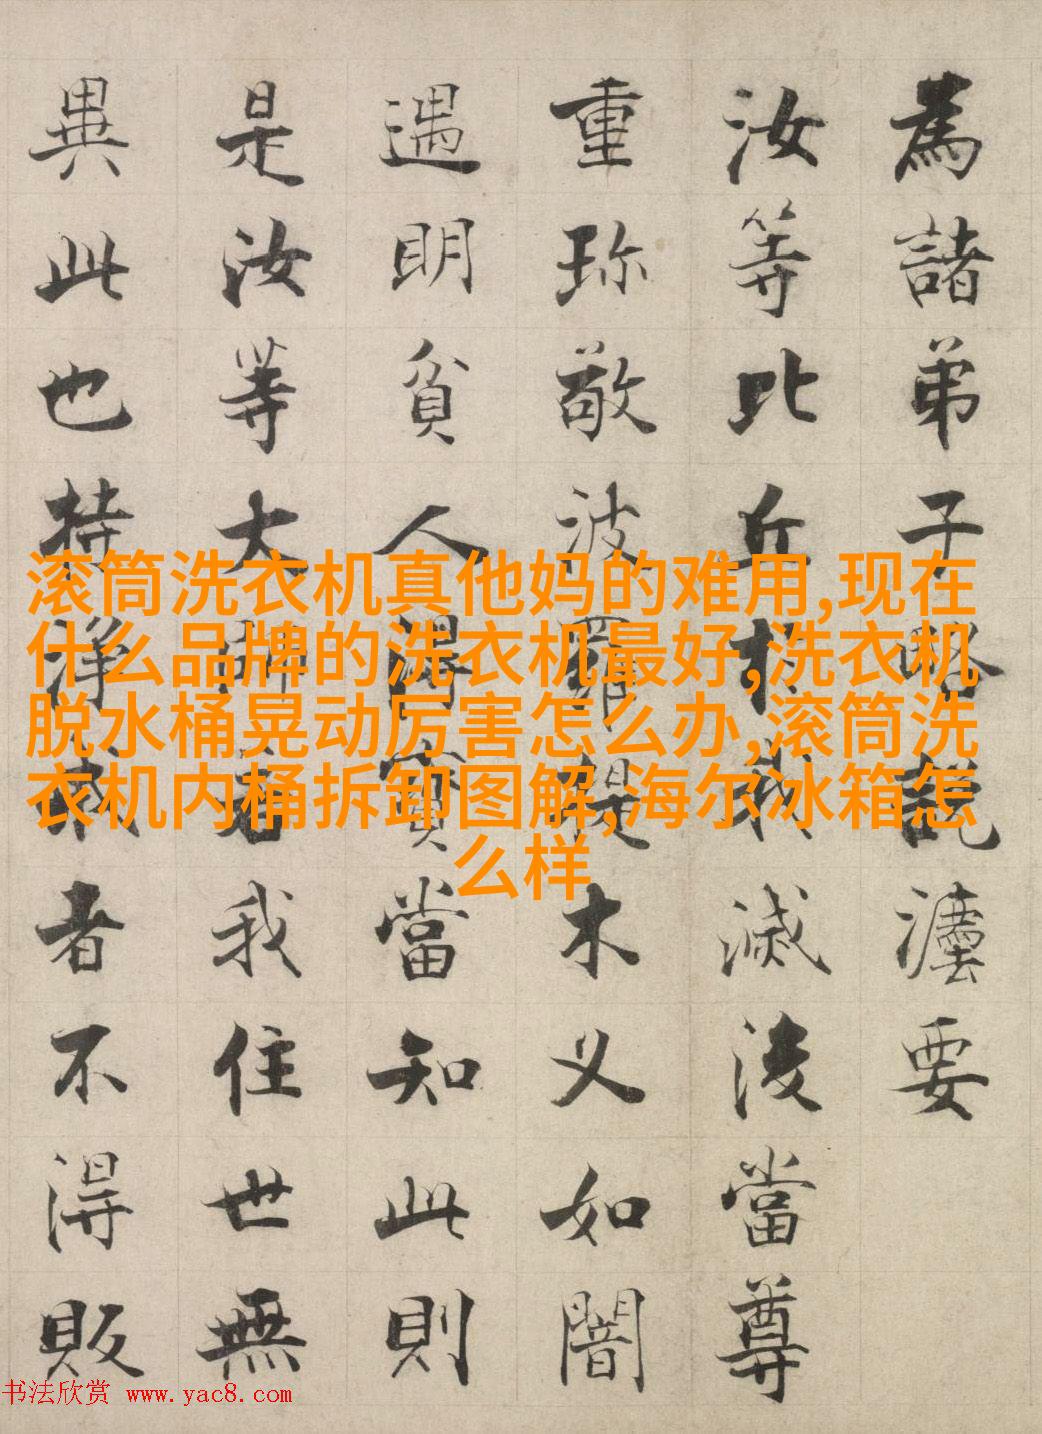 為諸弟子略說灋要
汝等比丘於我滅後當尊
重珎敬波羅提木叉如闇
遇明貧人得寶當知此則
是汝等大師若我住世無
異此也持淨戒者不得販
滚筒洗衣机真他妈的难用,现在
什么品牌的洗衣机最好,洗衣机
脱水桶晃动厉害怎么办,滚筒洗
衣机内桶拆卸图解,海尔冰箱怎
么样
书法欣赏 www.yac8.com